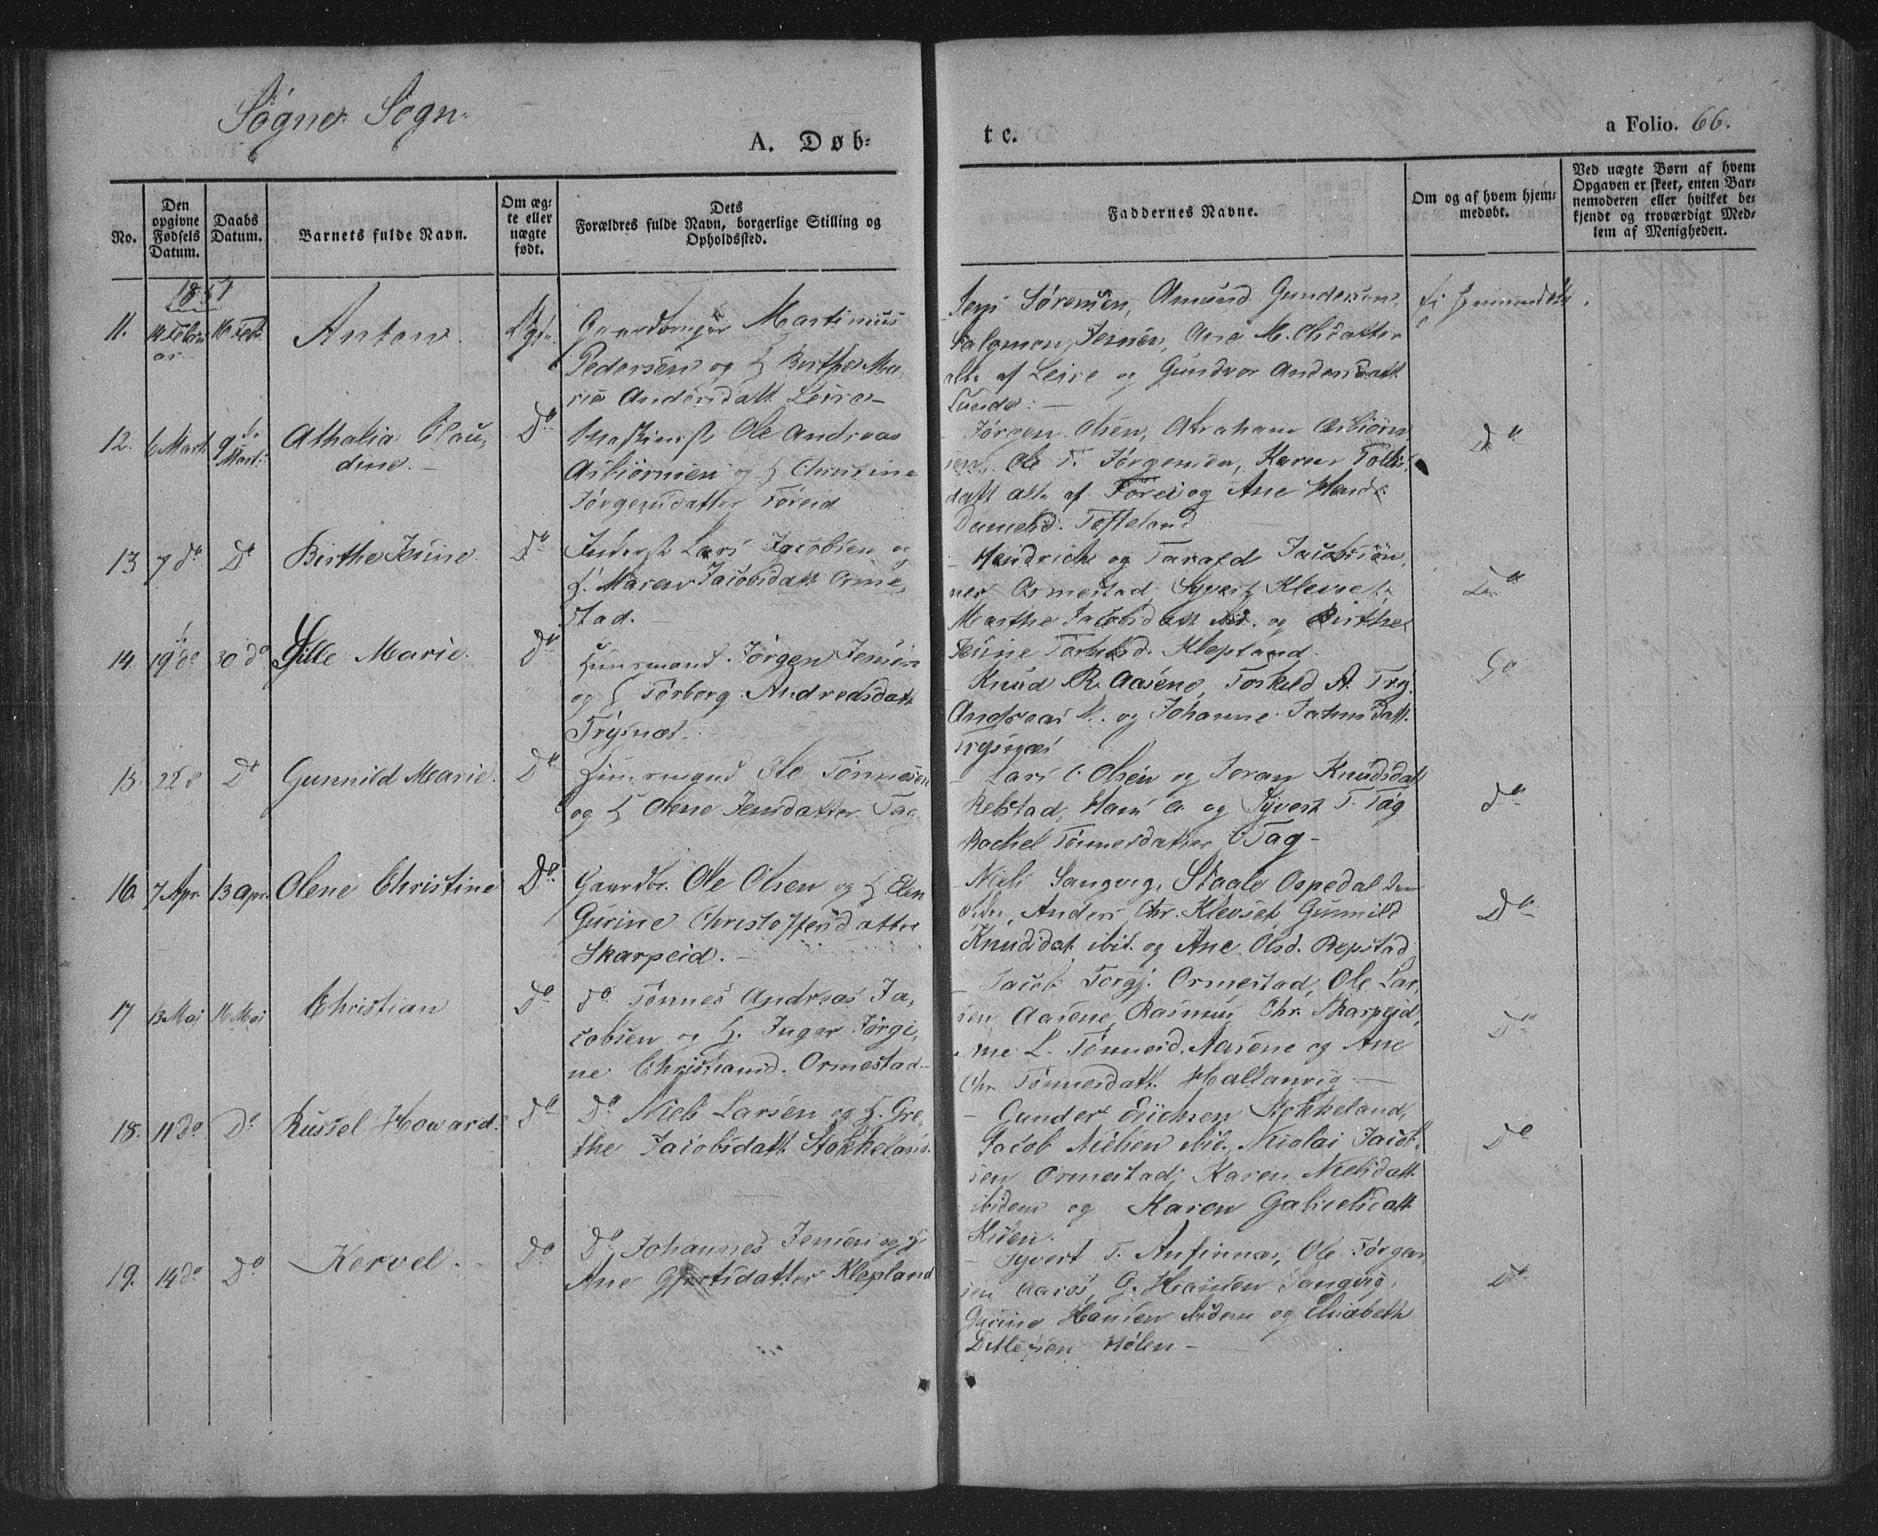 Søgne Sogn
A. Døb-
No.
Den opgivne Fødsels Datum.
Daabs Datum.
Barnets fulde Navn.
Om ægte eller uægte født.
Dets Forældres fulde Navn, borgerlige Stilling og Opholdssted.
1851
11.
Anton
Gaardbruger Martinius
Pedersen og H Birthe Ma-
rie Andersdatt Leire
12. 6 Marts
Athalia Clau-
dine.
Do
Ole Andreas
Asbiørnsen og H Christine
Jørgensdatter Føreid
13 7 do Do
Birthe Jenine
Do
Inderst Lars Jacobsen og
H. Maren Jacobsdatt Orme-
stad.
14. 19 do 30 do
Sille Marie
Do
Huusmand Jørgen Jensen
og H Torborg Andreasdatt
Trysnæs.
15. Do
Gunnild Marie.
Do
Huusmand Ole Tønnesen
og H Olene Jensdatter Tag
16. 7 Apr. 13 Apr.
Olene Christine
Do
Gaardbr. Ole Olsen og H Elen
Gurine Christoffersdatter
Skarpeid.
17 13 Mai 18 Mai
Christian
Do
do Tønnes Andreas Ja-
cobsen og H. Inger Jørgi-
ne Christiansd. Ormestad
18. 11 do Do
Russel Howard.
Do
Do Niels Larsen og H. Gre-
the Jacobsdatt Stokkeland.
19. 14 do Do
Kervel.
Do
Do Johannes Jensen og H
Ane Gjertsdatter Klepland
te.
a Folio. 66.
Faddernes Navne.
Om og af hvem hjemmedøbt.
Ved uægte Børn af hvem Opgaven er skeet, enten Barnemoderen eller hvilket bekjendt og troværdigt Medlem af Menigheden.
Jens Sørensen, Amund Gundersen,
Salomon Jensen, Ane M. Olsdatter
alle af Leire og Gundvor Andersdatt
Lunde.
Jørgen Olsen, Abraham Asbiørn-
sen, Ole T. Jørgensen, Karen Tollis-
datt alle af Førei og Ane
Danielsd. Tofteland
Do
Hendrich og Tarald Jacobsøn-
ner Ormestad, Syvert Klevset,
Marthe Jacobsdatt ibid. og Birthe
Jenine Klepland.
Knud R. Aasene, Torkild A. Try.
Andreas M. og Johanne Jahnsdatt.
Trysnæs
Do
Lars C. Olsen og Joran Knudsdatt
Repstad, Hans O. og Syvert T. Tag
Rachel Tønnesdatter Tag
do
Niels Langvig, Staale Ospedal
Anders Chr. Klevset Gunnild
Knudsdat. ibid. og Ane Olsd. Repstad
Do
Jacob Torgj. Ormestad, Ole Lar-
sen Aasene, Rasmus Chr. Skarpeid,
Ane L. Tønnesd. Aasene og Ane
Chr. Tønnesdatt. Hallanvig
Do
Gunder Stokkeland,
Jacob Nielsen ibid. Nicolai Jacob-
sen Ormestad, Karen Nielsdatt
ibidem og Karen Gabrielsdatt
Do
Syvert T. Anfinnæs, Ole Jørgen-
sen Aarøs, G. Hansen Langvig,
Gurine Hansen ibidem og Elisabeth
Ditlevsen Hølen
Do